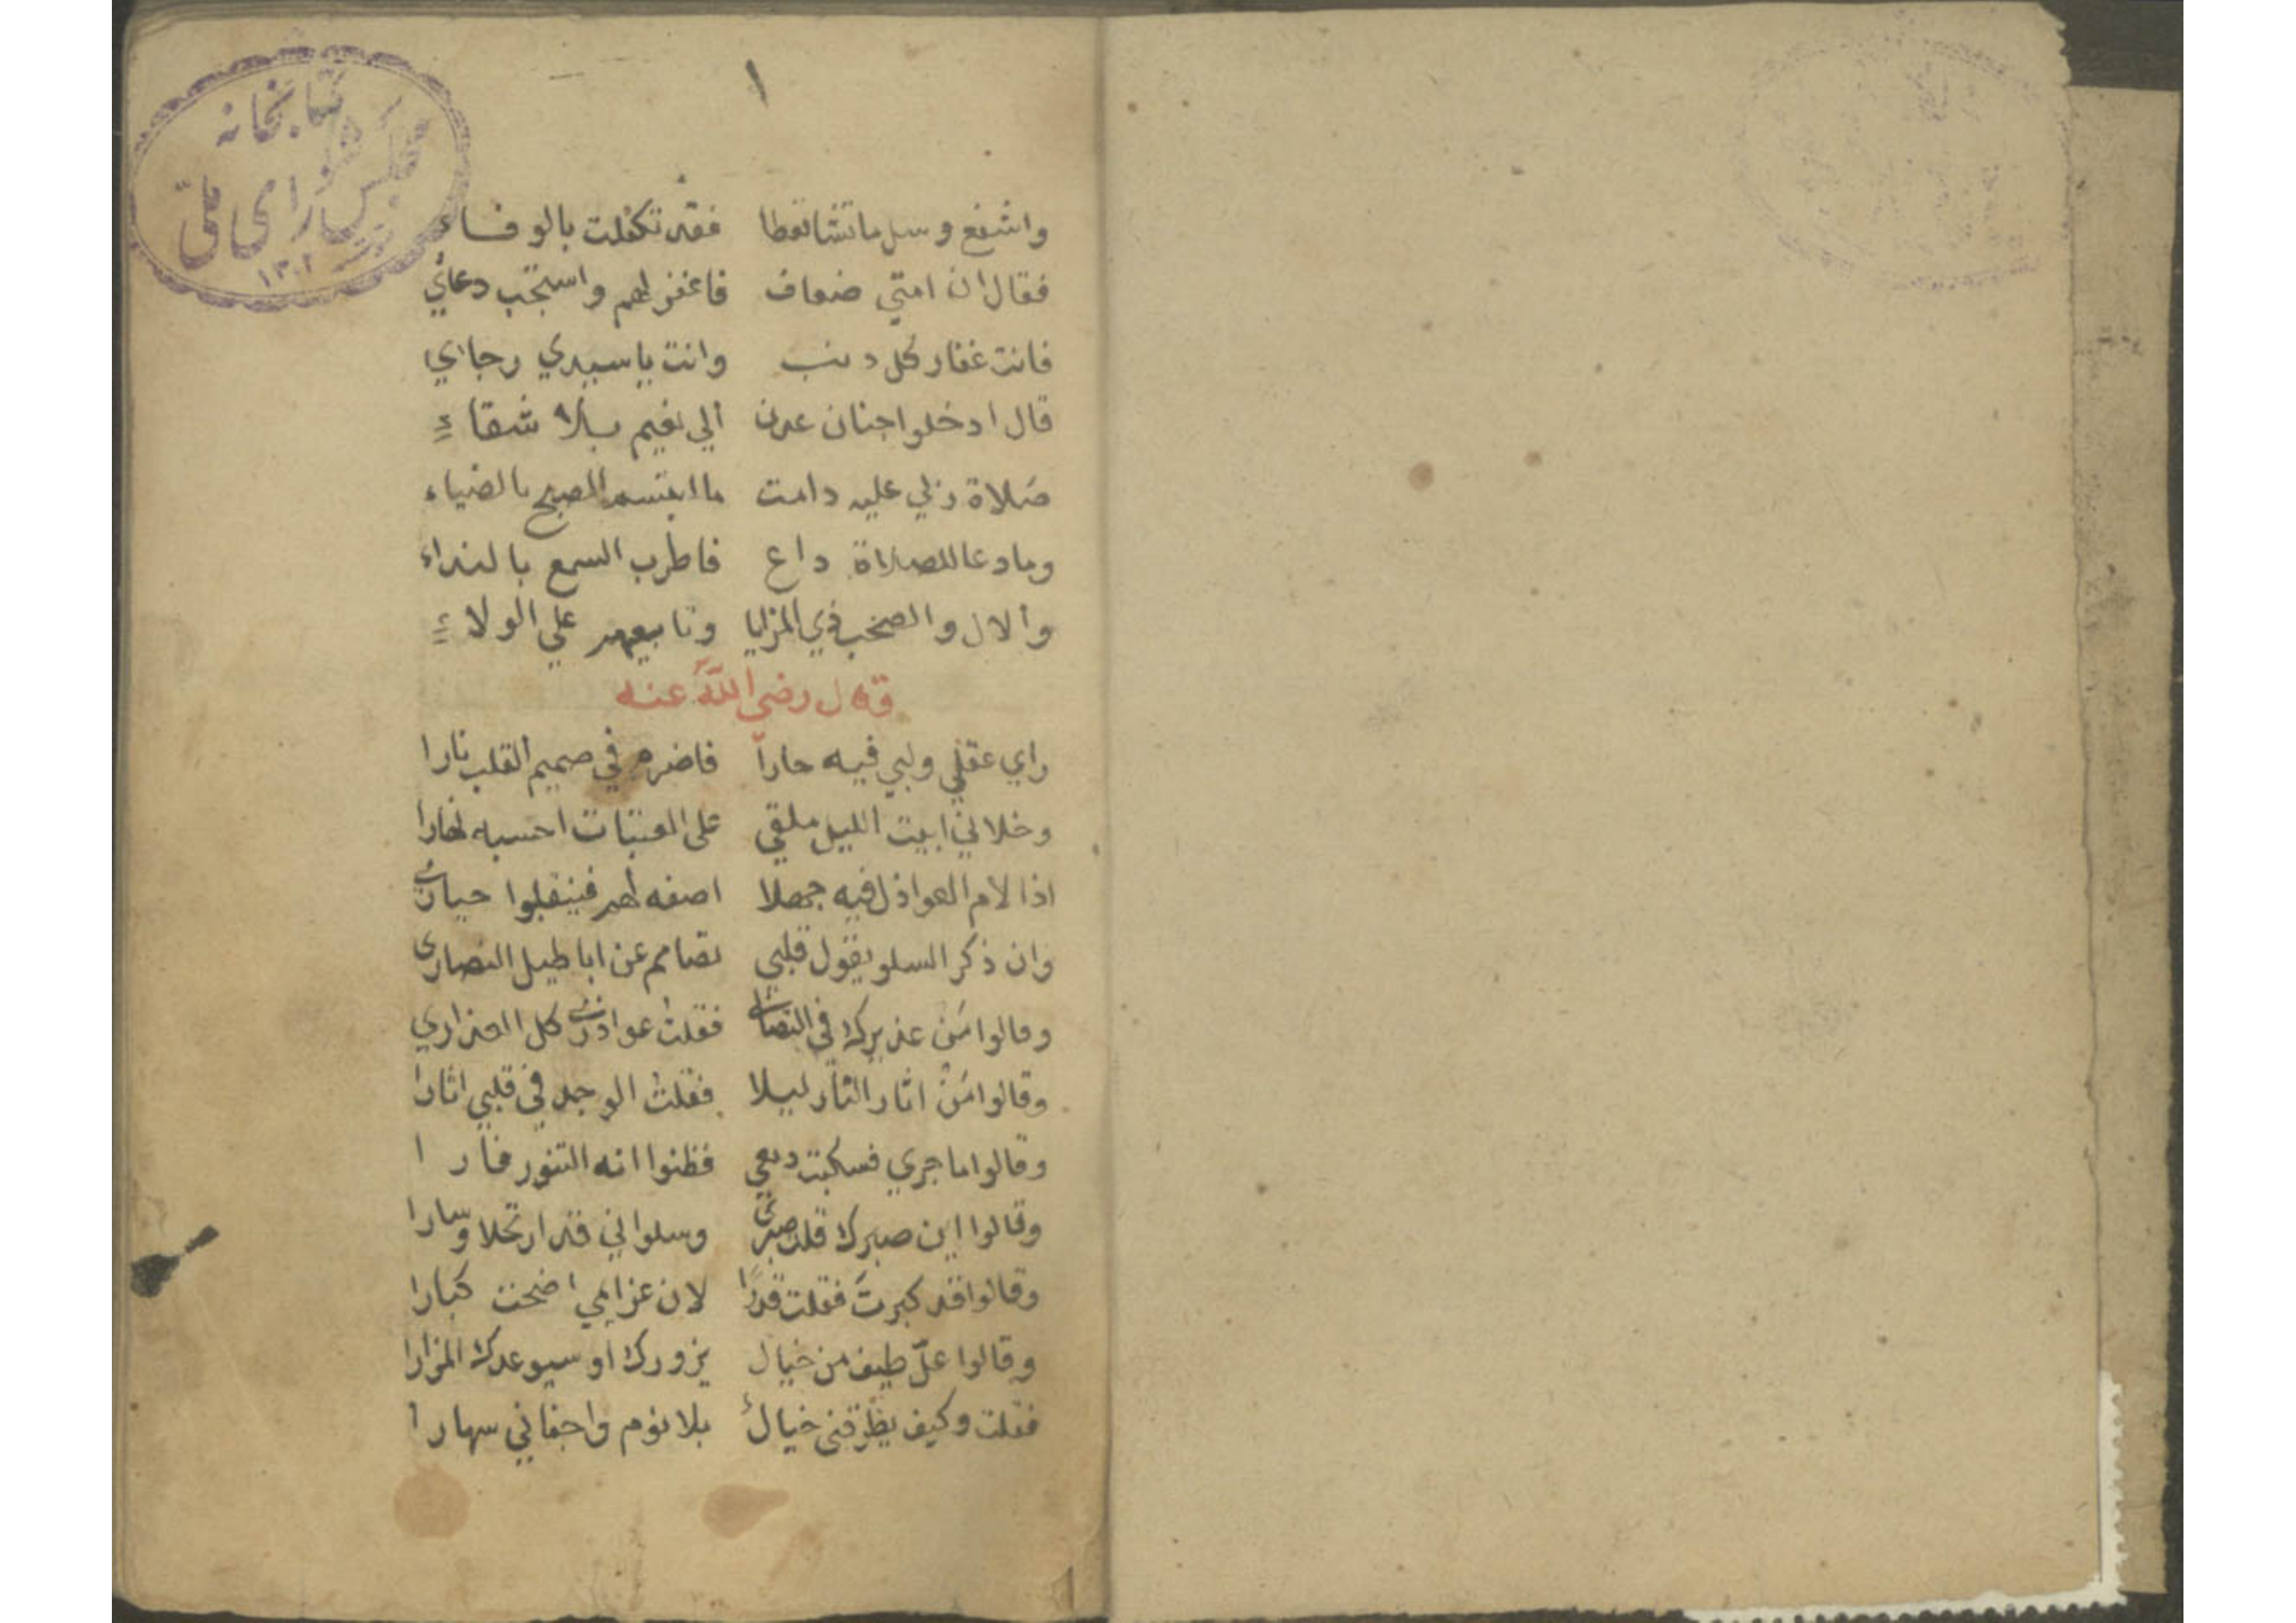 ١
كتابخانه
مجلس شورای ملی
١٣٠٢
واشفع وسل ما تشا تعطا فقد تكفلت بالوفاء
فقال ان امتي ضعاف فاغفر لهم واستجب دعائي
فانت غفار كل دنب وانت يا سيدي رجااي
قال ادخلوا جنان عدن الي نعيم بلا شقاء
صلاة ربي عليه دامت ما ابتسم الصبح بالضياء
وما دعا للصلاة داع فاطرب السمع بالنداء
والال والصحب ذي المزايا وتابعيهم علي الولاء
قال رضي الله عنه
راي عقلي ولبي فيه حارا فاضرم في صميم القلب نارا
وخلاني ابيت الليل ملقي على العتبات احسبه نهارا
اذا لام العواذل فيه جهلا اصفه لهم فينقلبوا حيارى
وان ذكر السلو يقول قلبي تصامم عن اباطيل النصارى
وقالوا مَن عذيرك في النصارى فقلت عواذرى كل العذاري
وقالوا مَنْ اثار النار ليلا فقلت الوجد في قلبي اثارا
وقالوا ما جري فسكبت دمعي فظنوا انه التنور فارا
وقالوا اين صبرك قلت صبرى وسلواني قد ارتحلا وسارا
وقالوا قد كبرتَ فقلت قدرًا لان عزايمي اضحت كبارا
وقالوا علّ طيف من خيال يزورك او سيوعدك المزارا
فقلت وكيف يطرقني خيال بلا نوم واجفاني سهارا